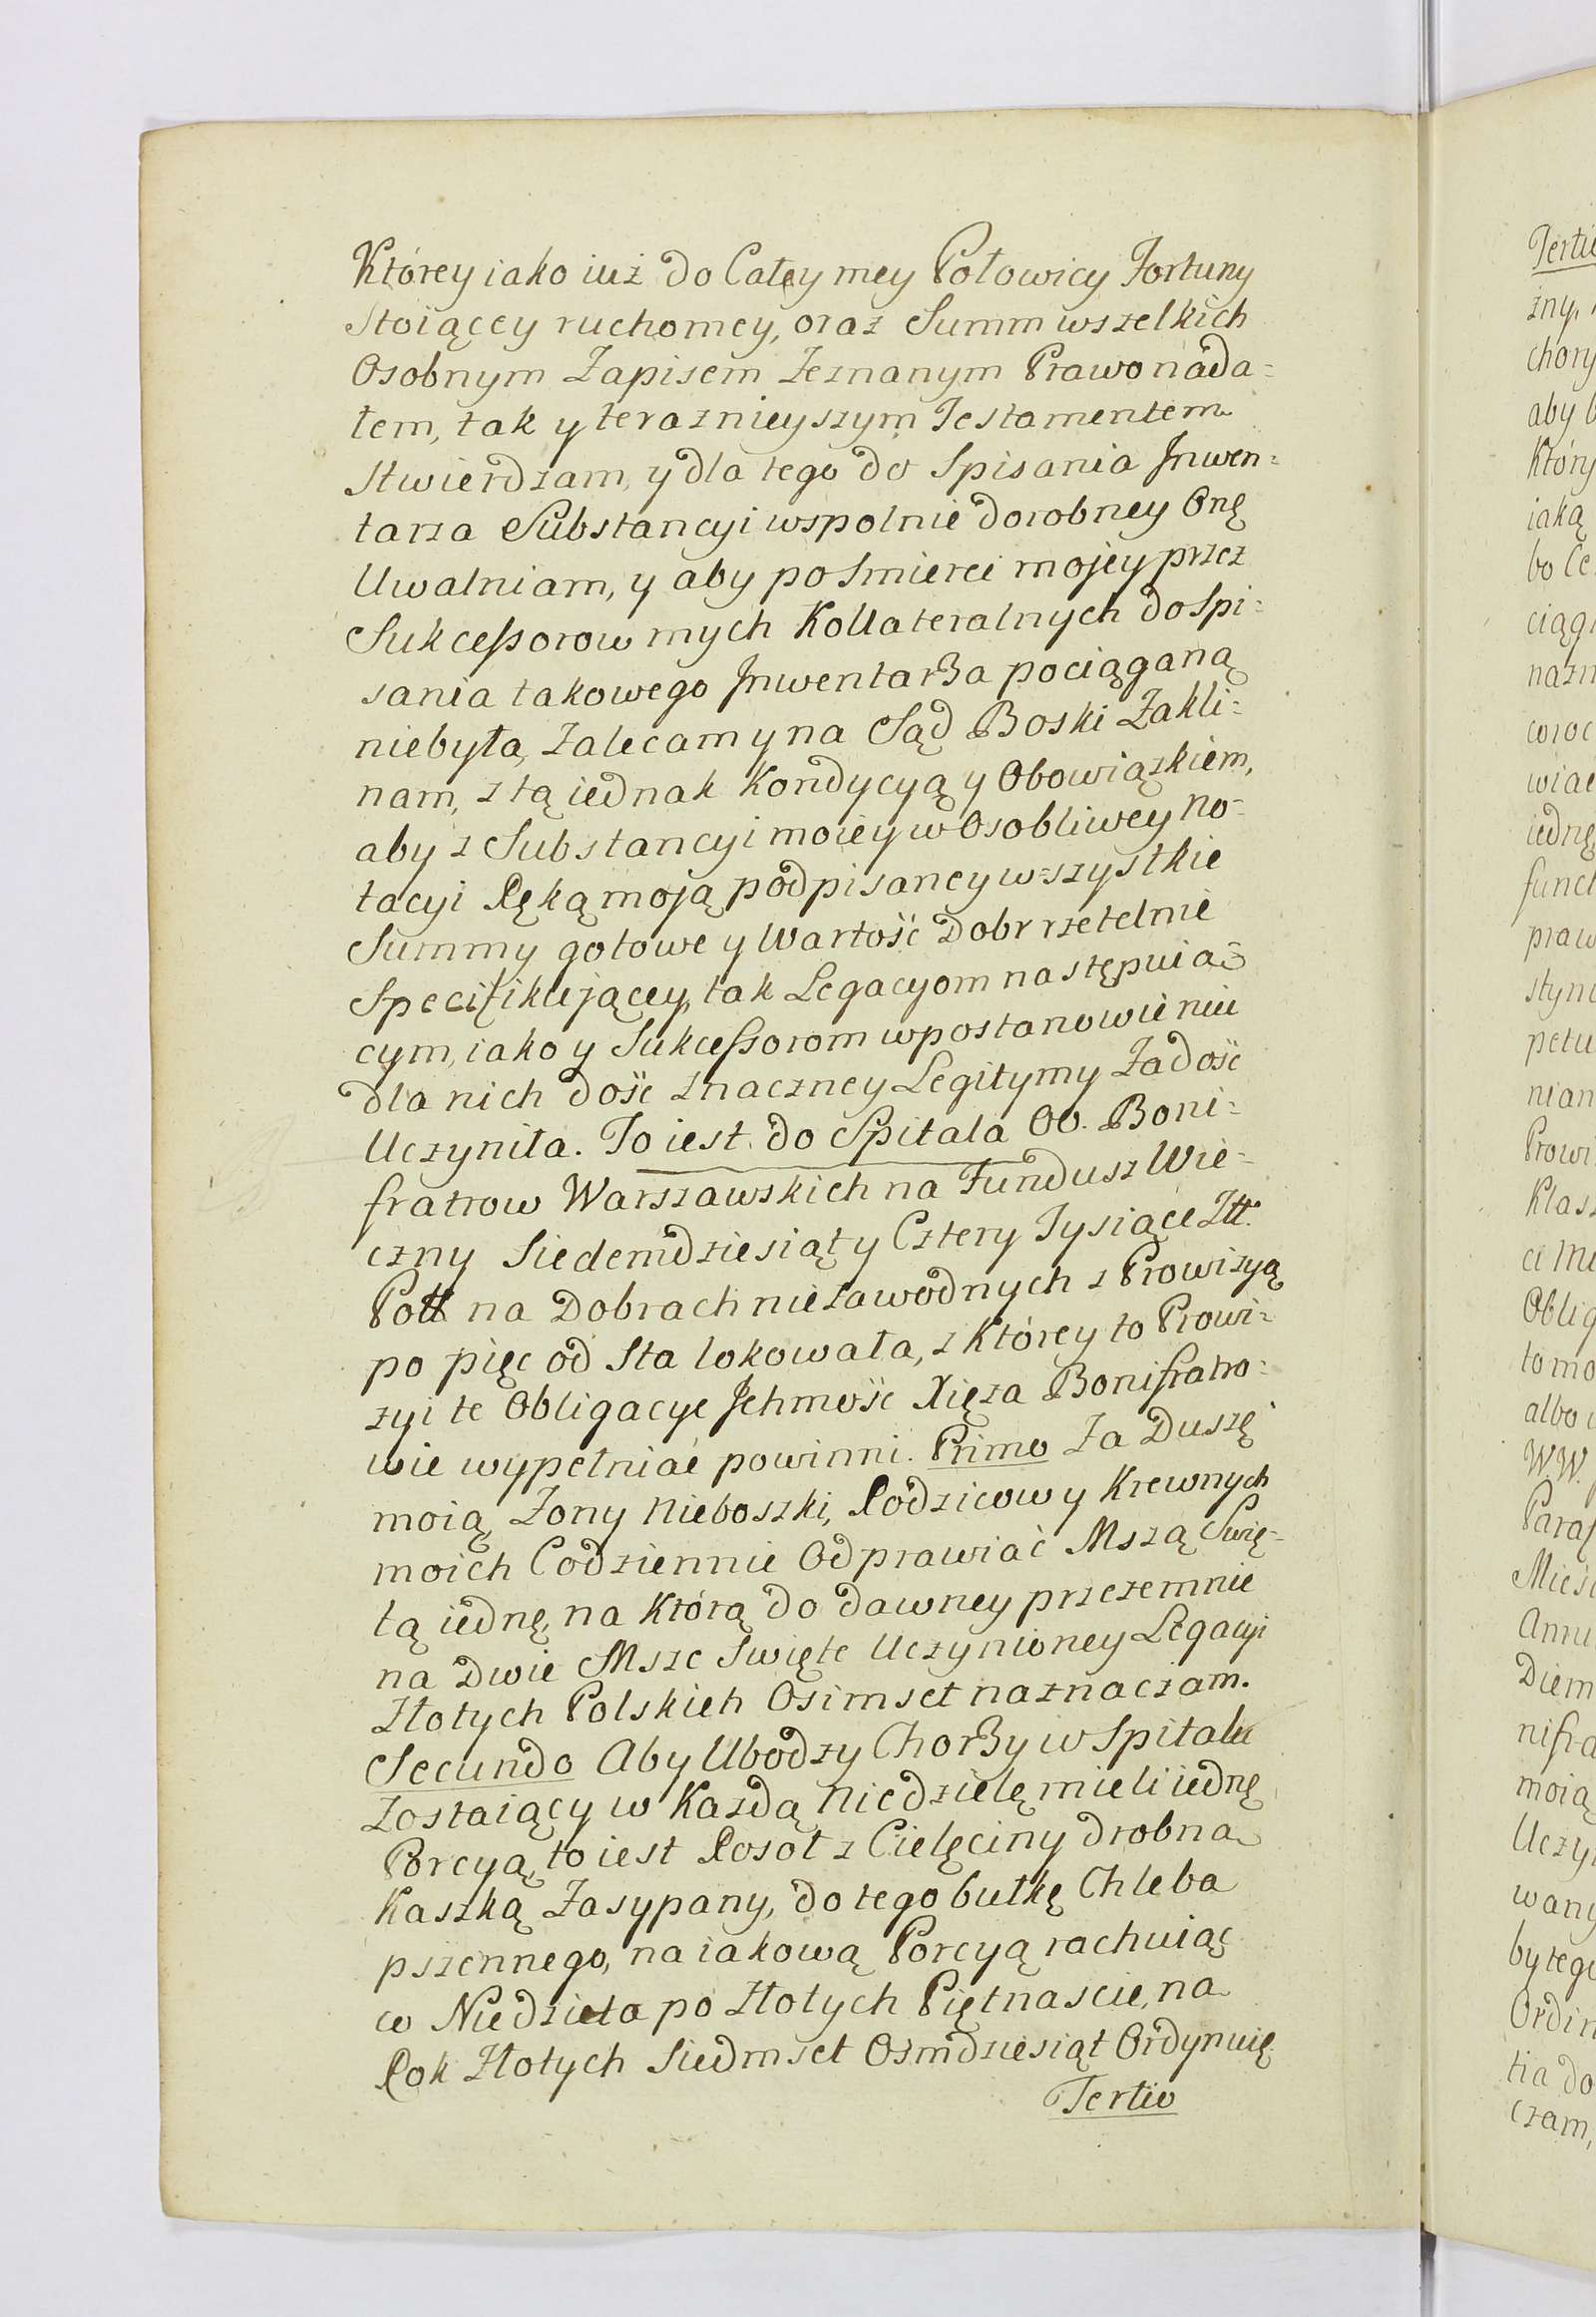 Którey iako iuż do Całey mey Połowicy Fortuny
Stoiącey ruchomey, oraz Summ wszelkich
Osobnym Zapisem Zeznanym Prawo nada=
łem, tak y teraznieyszym Testamentem
Stwierdzam, y dla tego do Spisania Jnwen=
tarza Substancyi wspolnie dorobney Onę
Uwalniam, y aby po Smierci mojey przez
Sukceſsorow mych Kollateralnych do Spi=
sania takowego Jnwentarza pociąganą
niebyła, Zalecam y na Sąd Boski Zakli=
nam, z tą iednak Kondycyą y Obowiązkiem,
aby z Substancyi moiey w Osobliwey No=
tacyi Ręką moją podpisaney wszystkie
Summy gotowe y Wartość Dobr rzetelnie
Specifikującey, tak Legacyom następuią=
cym, iako y Sukceſsorom w postanowieniu
dla nich dość znaczney Legitymy Zadość
Uczyniła. To iest do Spitala Oo. Boni=
fratrow Warszawskich na Fundusz Wie=
czny Siedemdziesiąt y Cztery Tysiące Złł.
Poll na Dobrach niezawodnych z Prowizyą
po pięc od Sta lokowała, z Którey to Prowi=
zyi te Obligacye Jchmość Xięża Bonifratro=
wie wypełniać powinni. Primo Za Duszę
moią, Żony Nieboszki, Rodzicow y Krewnych
moich Codziennie Odprawiać Mszą Swię=
tą iednę, na Którą do dawney przezemnie
na Dwie Msze Swięte Uczynioney Legacyi
Złotych Polskich Osimset naznaczam.
Secundo Aby Ubodzy Chorzy w Spitalu
Zostaiący w Każdą Niedzielę mieli iednę
Porcyą, to iest Rosoł z Cielęciny drobną
Kaszką Zasypany, do tego bułkę Chleba
pszennego, na iakową Porcyą rachuiąc
co Niedziela po Złotych Piętnascie, na
Rok Złotych Siedmset Ośmdziesiąt Ordynuię.
Tertio